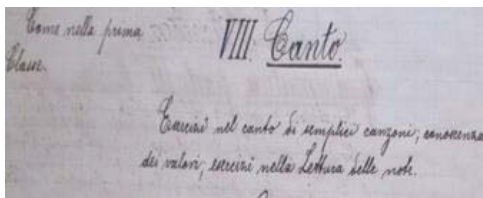 Come nella prima
Classe.
VIII. Canto.
Esercizî nel canto di semplici canzoni; conoscenza
dei valori; esercizî nella Lettura delle note.